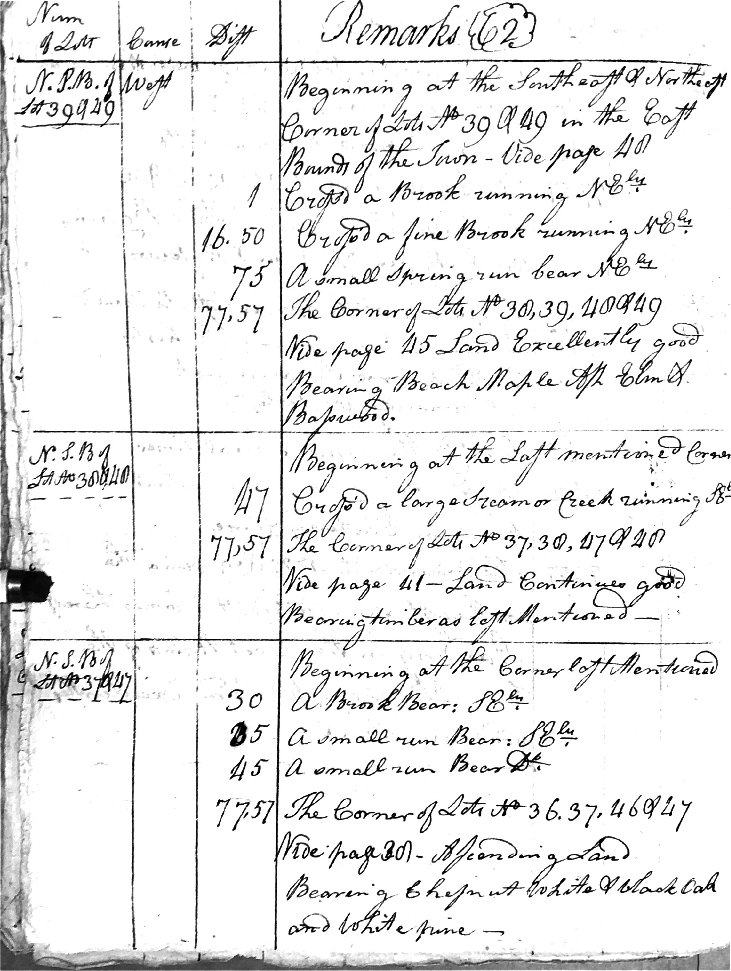 Num of Lots Course Dist Remarks 62
N. S. B. of West Beginning at the Southeast & Northeast
Lot 39 & 49 Corner of Lots No 39 & 49 in the East
Bounds of the Town - Vide page 48
1 Cross'd a Brook running NEly.
16.50 Cross'd a fine Brook running NEly.
75 A small Spring run bear NEly
77,57 The Corner of Lots No 38, 39, 48 & 49
Vide page 45 Land Excellently good
Bearing Beach Maple Ash Elm &
Basswood.
N. S. B of Beginning at the Last mentioned Corner
Lot No 38 & 48
47 Cross'd a large Stream or Creek running SEly
77,57 The Corner of Lots No 37, 38, 47 & 48
Vide page 41 - Land Continues good
Bearing timber as last Mentioned —
N. S. B of Beginning at the Corner last Mentioned
Lot No 37 & 47
30 A Brook Bear: SEly.
35 A small run Bear: SEly.
45 A small run Bear Do.
77,57 The Corner of Lots No 36. 37. 46 & 47
Vide page 38 - Ascending Land
Bearing Chesnut White & black Oak
and White pine —